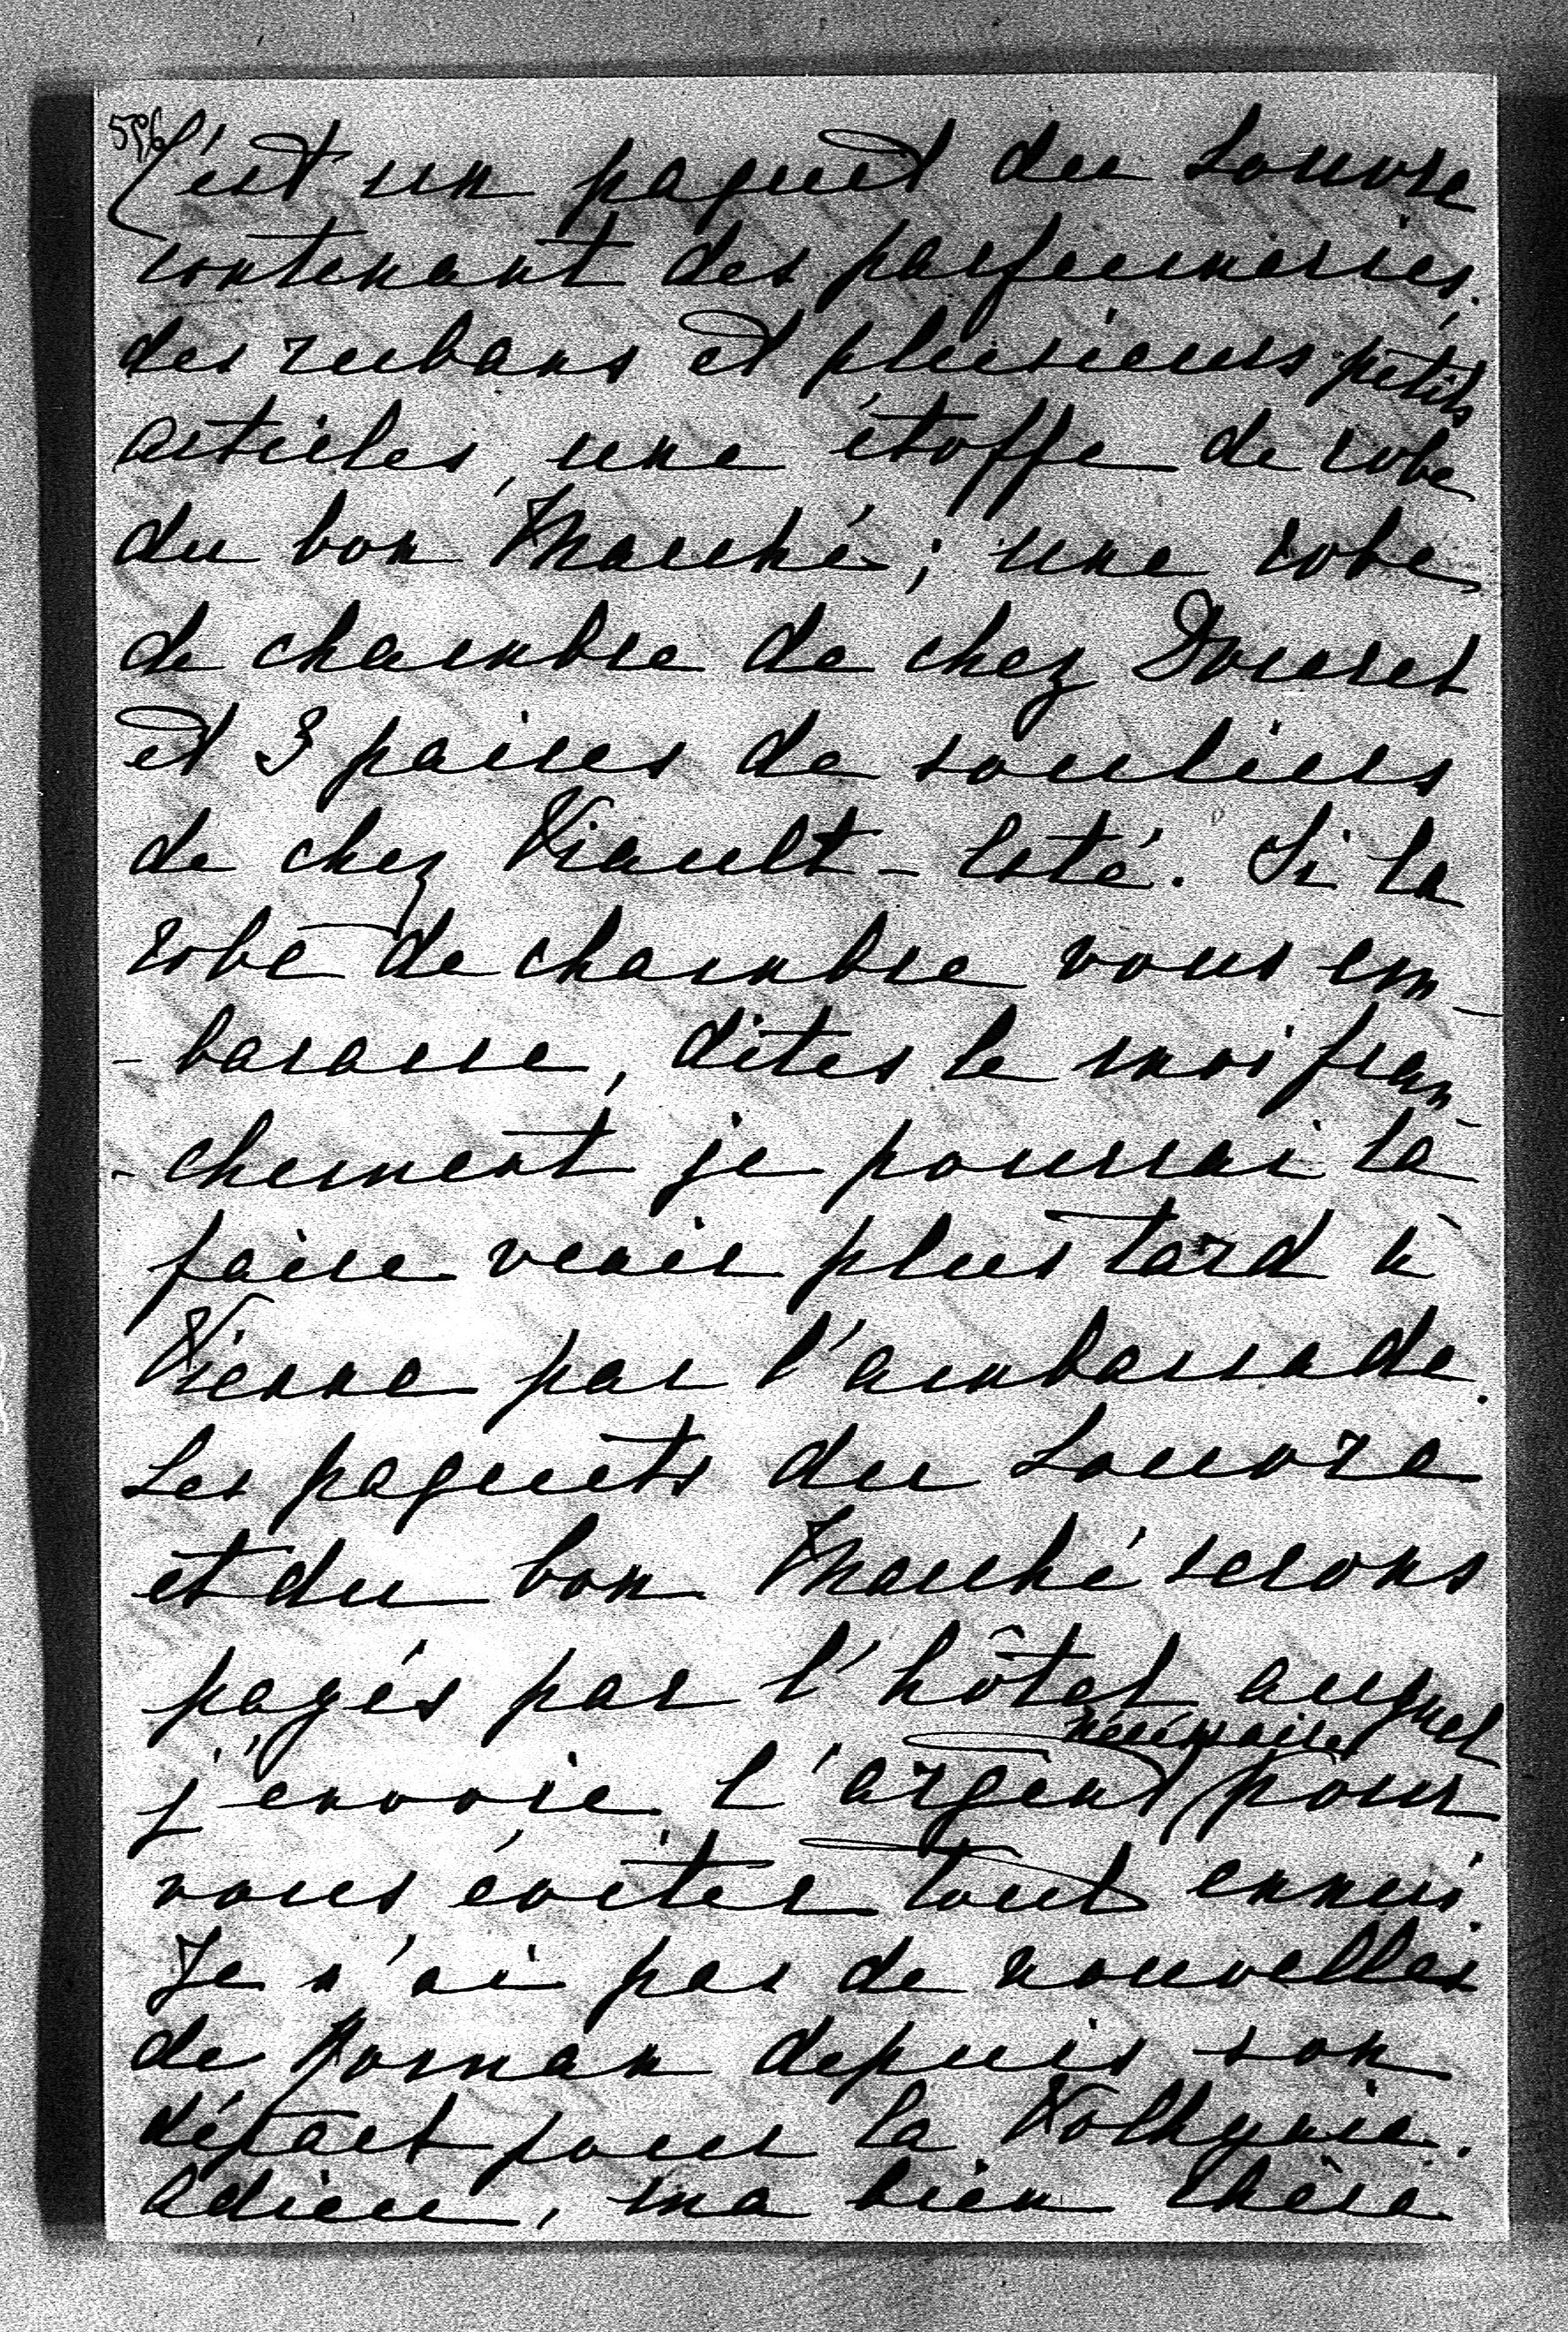 596
C'est un paquet du Louvre
contenant des parfumeries,
des rubans et plusieurs petits
articles, une étoffe de robe
du bon Marché; une robe
de chambre de chez Doucet
et 3 paires de souliers
de chez Viault-Coté. Si la
robe de chambre vous em-
-barasse, dites le moi fran-
-chement je pourrai la
faire venir plus tard à
Vienne par l'ambassade.
Les paquets du Louvre
et du bon Marché serons
payés par l'hôtel auquel
nécéssaire
j'envoie l'argent pour
vous éviter tout ennui.
Je n'ai pas de nouvelles
de Roman depuis son
départ pour la Volhynie.
Adieu, ma bien chère